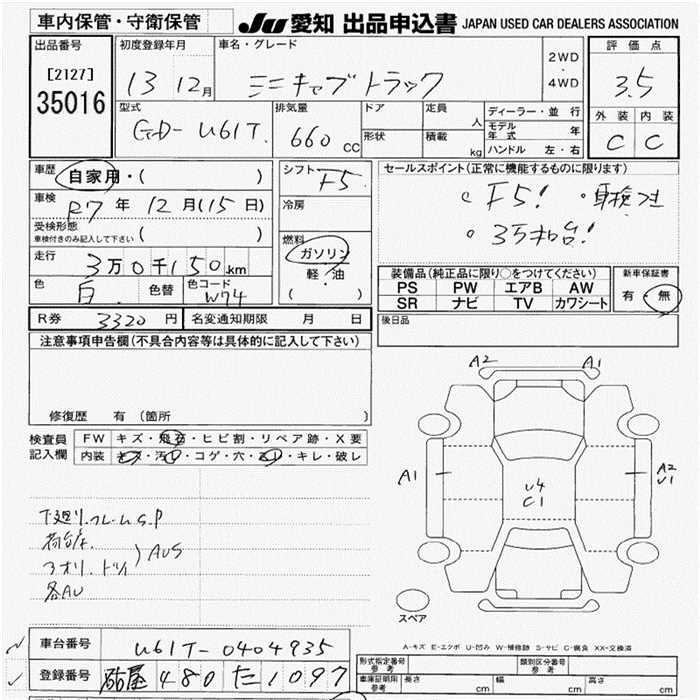 車内保管・守衛保管
JU 愛知 出品申込書 JAPAN USED CAR DEALERS ASSOCIATION
出品番号
[2127]
35016
初度登録年月
13 12月
車名・グレード
ミニキャブトラック
2WD
・
4WD
評価点
3.5
外装 内装
C C
型式
GD-U61T
排気量
660 cc
ドア
形状
定員
人
積載
kg
ディーラー・並行
モデル年式 年
ハンドル 左・右
車歴 自家用・( )
車検 R7 年 12 月 (15 日)
受検形態
車検付きのみ記入して下さい ( )
走行
3万0千150km
色 白
色替
色コード W74
シフト F5
冷房
燃料
ガソリン
軽・油
( )
セールスポイント(正常に機能するものに限ります)
・F5! ・車検付
・3万km台!
装備品(純正品に限り○をつけてください)
PS PW エアB AW
SR ナビ TV カワシート
新車保証書
有・無
R券 3320 円 名変通知期限 月 日
後日品
注意事項申告欄(不具合内容等は具体的に記入して下さい)
修復歴 有 (箇所 )
検査員記入欄
FW キズ・飛石・ヒビ割・リペア跡・X要
内装 キズ・汚れ・コゲ・穴・スレ・キレ・破レ
下廻り.フレームS.P
荷台左.
アオリ.トリイ) AUS
各AU
A2 A1
A1
A2
U1
U4
C1
スペア
A-キズ E-エクボ U-凹み W-補修跡 S-サビ C-腐食 XX-交換済
車台番号 U61T-0404935
登録番号 名古屋 480 た 1097
形式指定番号
参考
類別区分番号
参考
車庫証明用
参考
長さ cm 幅 cm 高さ cm